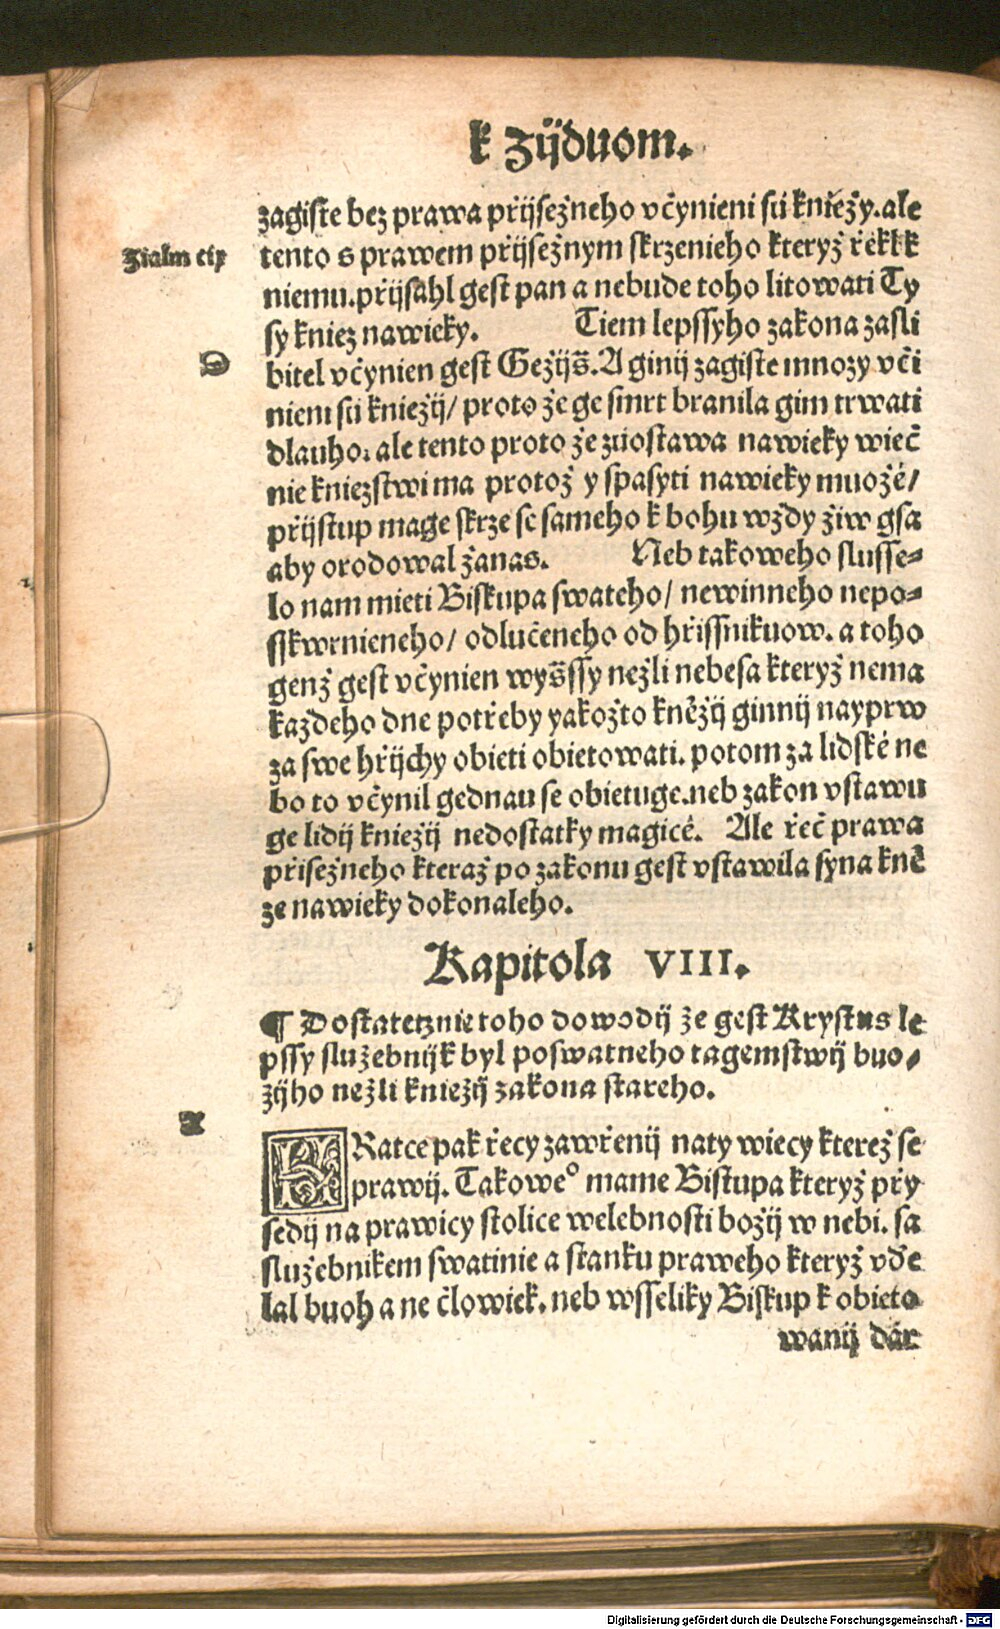 k Zijduom.
zagiste bez prawa přijsežneho včynieni sú kniežy. ale
Zialm cix
tento s prawem přijsežnym skrzenieho kteryž řekl k
niemu. přijsahl gest pan a nebude toho litowati Ty
sy kniez nawieky. Tiem lepssyho zakona zasli
D
bitel včynien gest Gežijš. A ginij zagiste mnozy vči
niem sú kniežij/ proto že ge smrt branila gim trwati
dlauho. ale tento proto že zuostawa nawieky wieč
nie kniezstwi ma protož y spasyti nawieky muože/
přijstup mage skrze se sameho k bohu wždy žiw gsa
aby orodowal žanas. Neb takoweho slusse-
lo nam mieti Biskupa swateho/ newinneho nepo-
sskwrnieneho/ odlučeneho od hřissnikuow. a toho
genž gest včynien wyšssy nežli nebesa kteryž nema
každeho dne potřeby yakožto kněžij ginnij nayprw
za swe hřijchy obieti obietowati. potom za lidské ne
bo to včynil gednau se obietuge. neb zakon vstawu
ge lidij kniežij nedostatky magicé. Ale řeč prawa
přisežneho kteraž po zakonu gest vstawila syna kně
ze nawieky dokonaleho.
Kapitola VIII.
¶ Dostatetznie toho dowodij že gest Krystus le
pssy služebnijk byl poswatneho tagemstwij buo-
žijho nežli kniežij zakona stareho.
A
KRatce pak řecy zawřenij naty wiecy kterež se
prawij. Takoweº mame Biskupa kteryž přy
sedij na prawicy stolice welebnosti božij w nebi. sa
služebnikem swatinie a stanku praweho kteryž vďe
lal buoh a ne člowiek. neb wsseliky Biskup k obieto
wanij dár
Digitalisierung gefördert durch die Deutsche Forschungsgemeinschaft - DFG